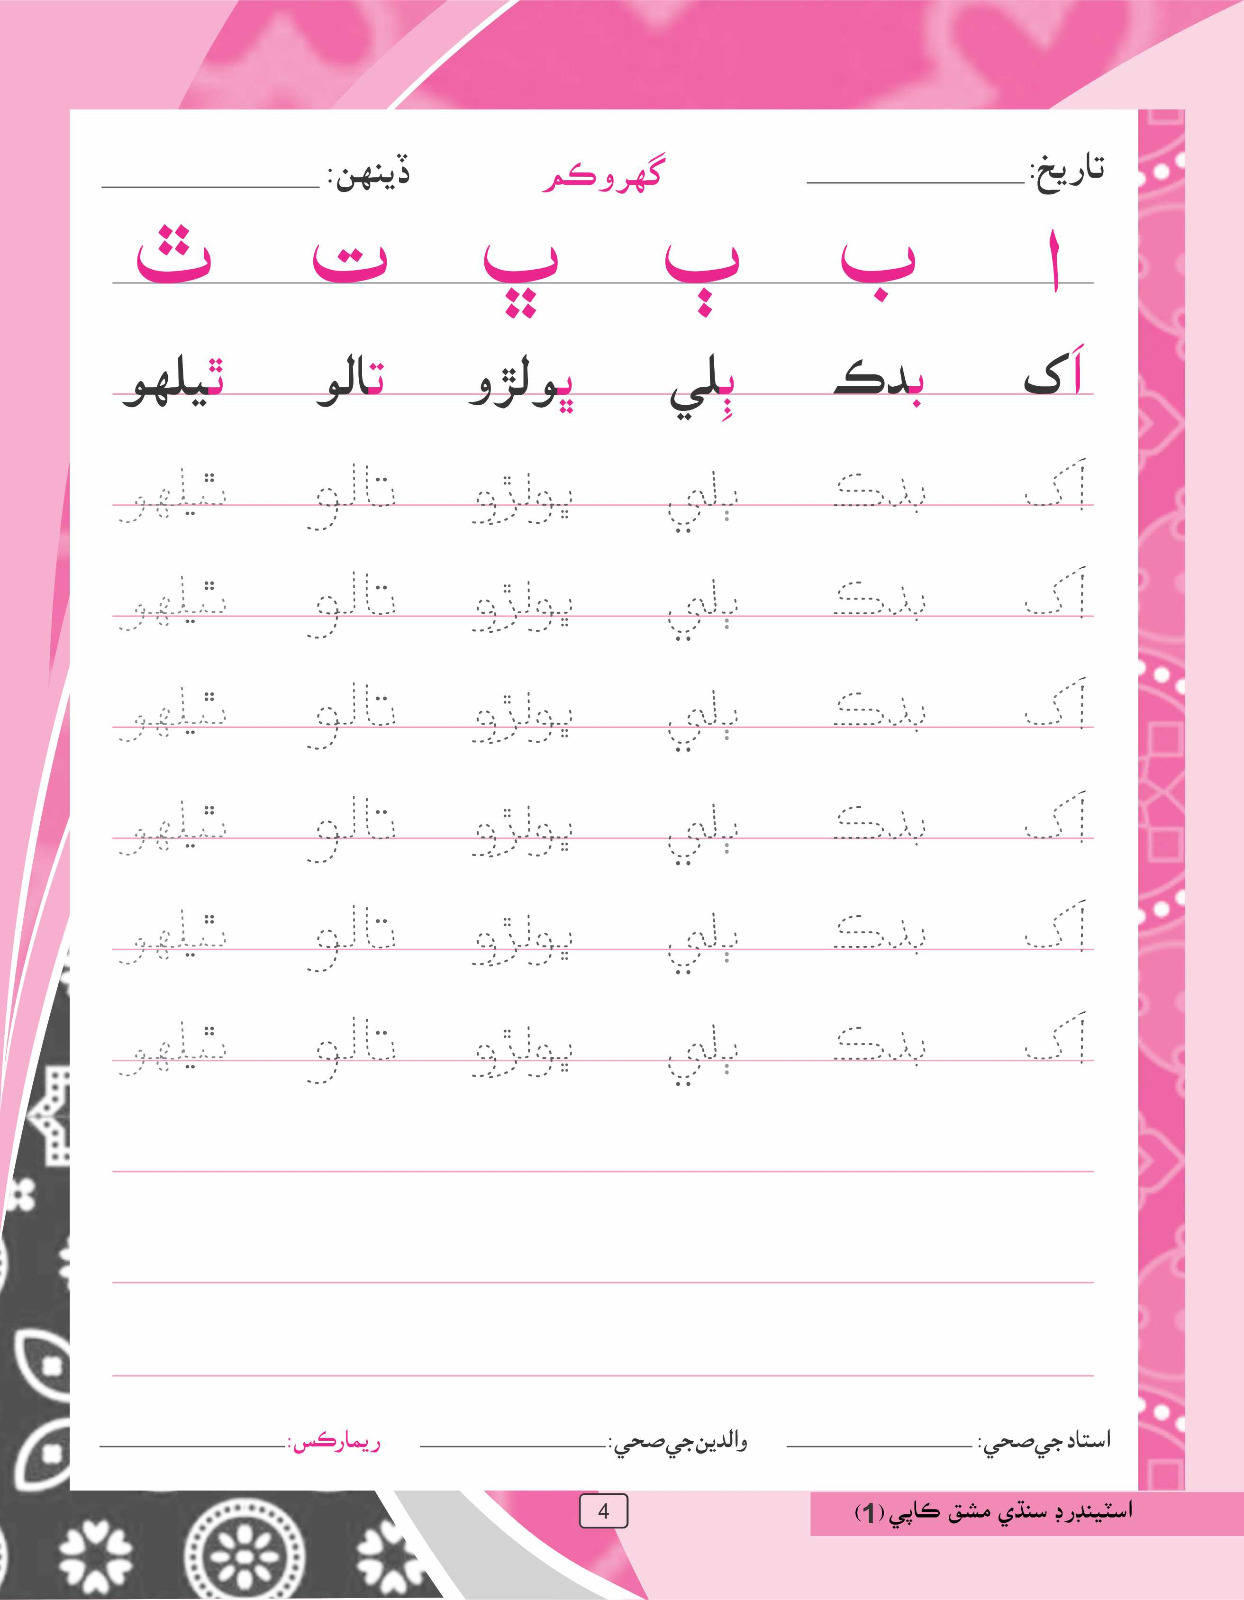 تاريخ: گهرو ڪم ڏينهن:
ا ب ٻ ڀ ت ٿ
اَک بدڪ ٻِلي ڀولڙو تالو ٿيلهو
اَک بدڪ ٻلي ڀولڙو تالو ٿيلهو
اَک بدڪ ٻلي ڀولڙو تالو ٿيلهو
اَک بدڪ ٻلي ڀولڙو تالو ٿيلهو
اَک بدڪ ٻلي ڀولڙو تالو ٿيلهو
اَک بدڪ ٻلي ڀولڙو تالو ٿيلهو
اَک بدڪ ٻلي ڀولڙو تالو ٿيلهو
استاد جي صحي: والدين جي صحي: ريمارڪس:
اسٽينڊرڊ سنڌي مشق ڪاپي (1)
4